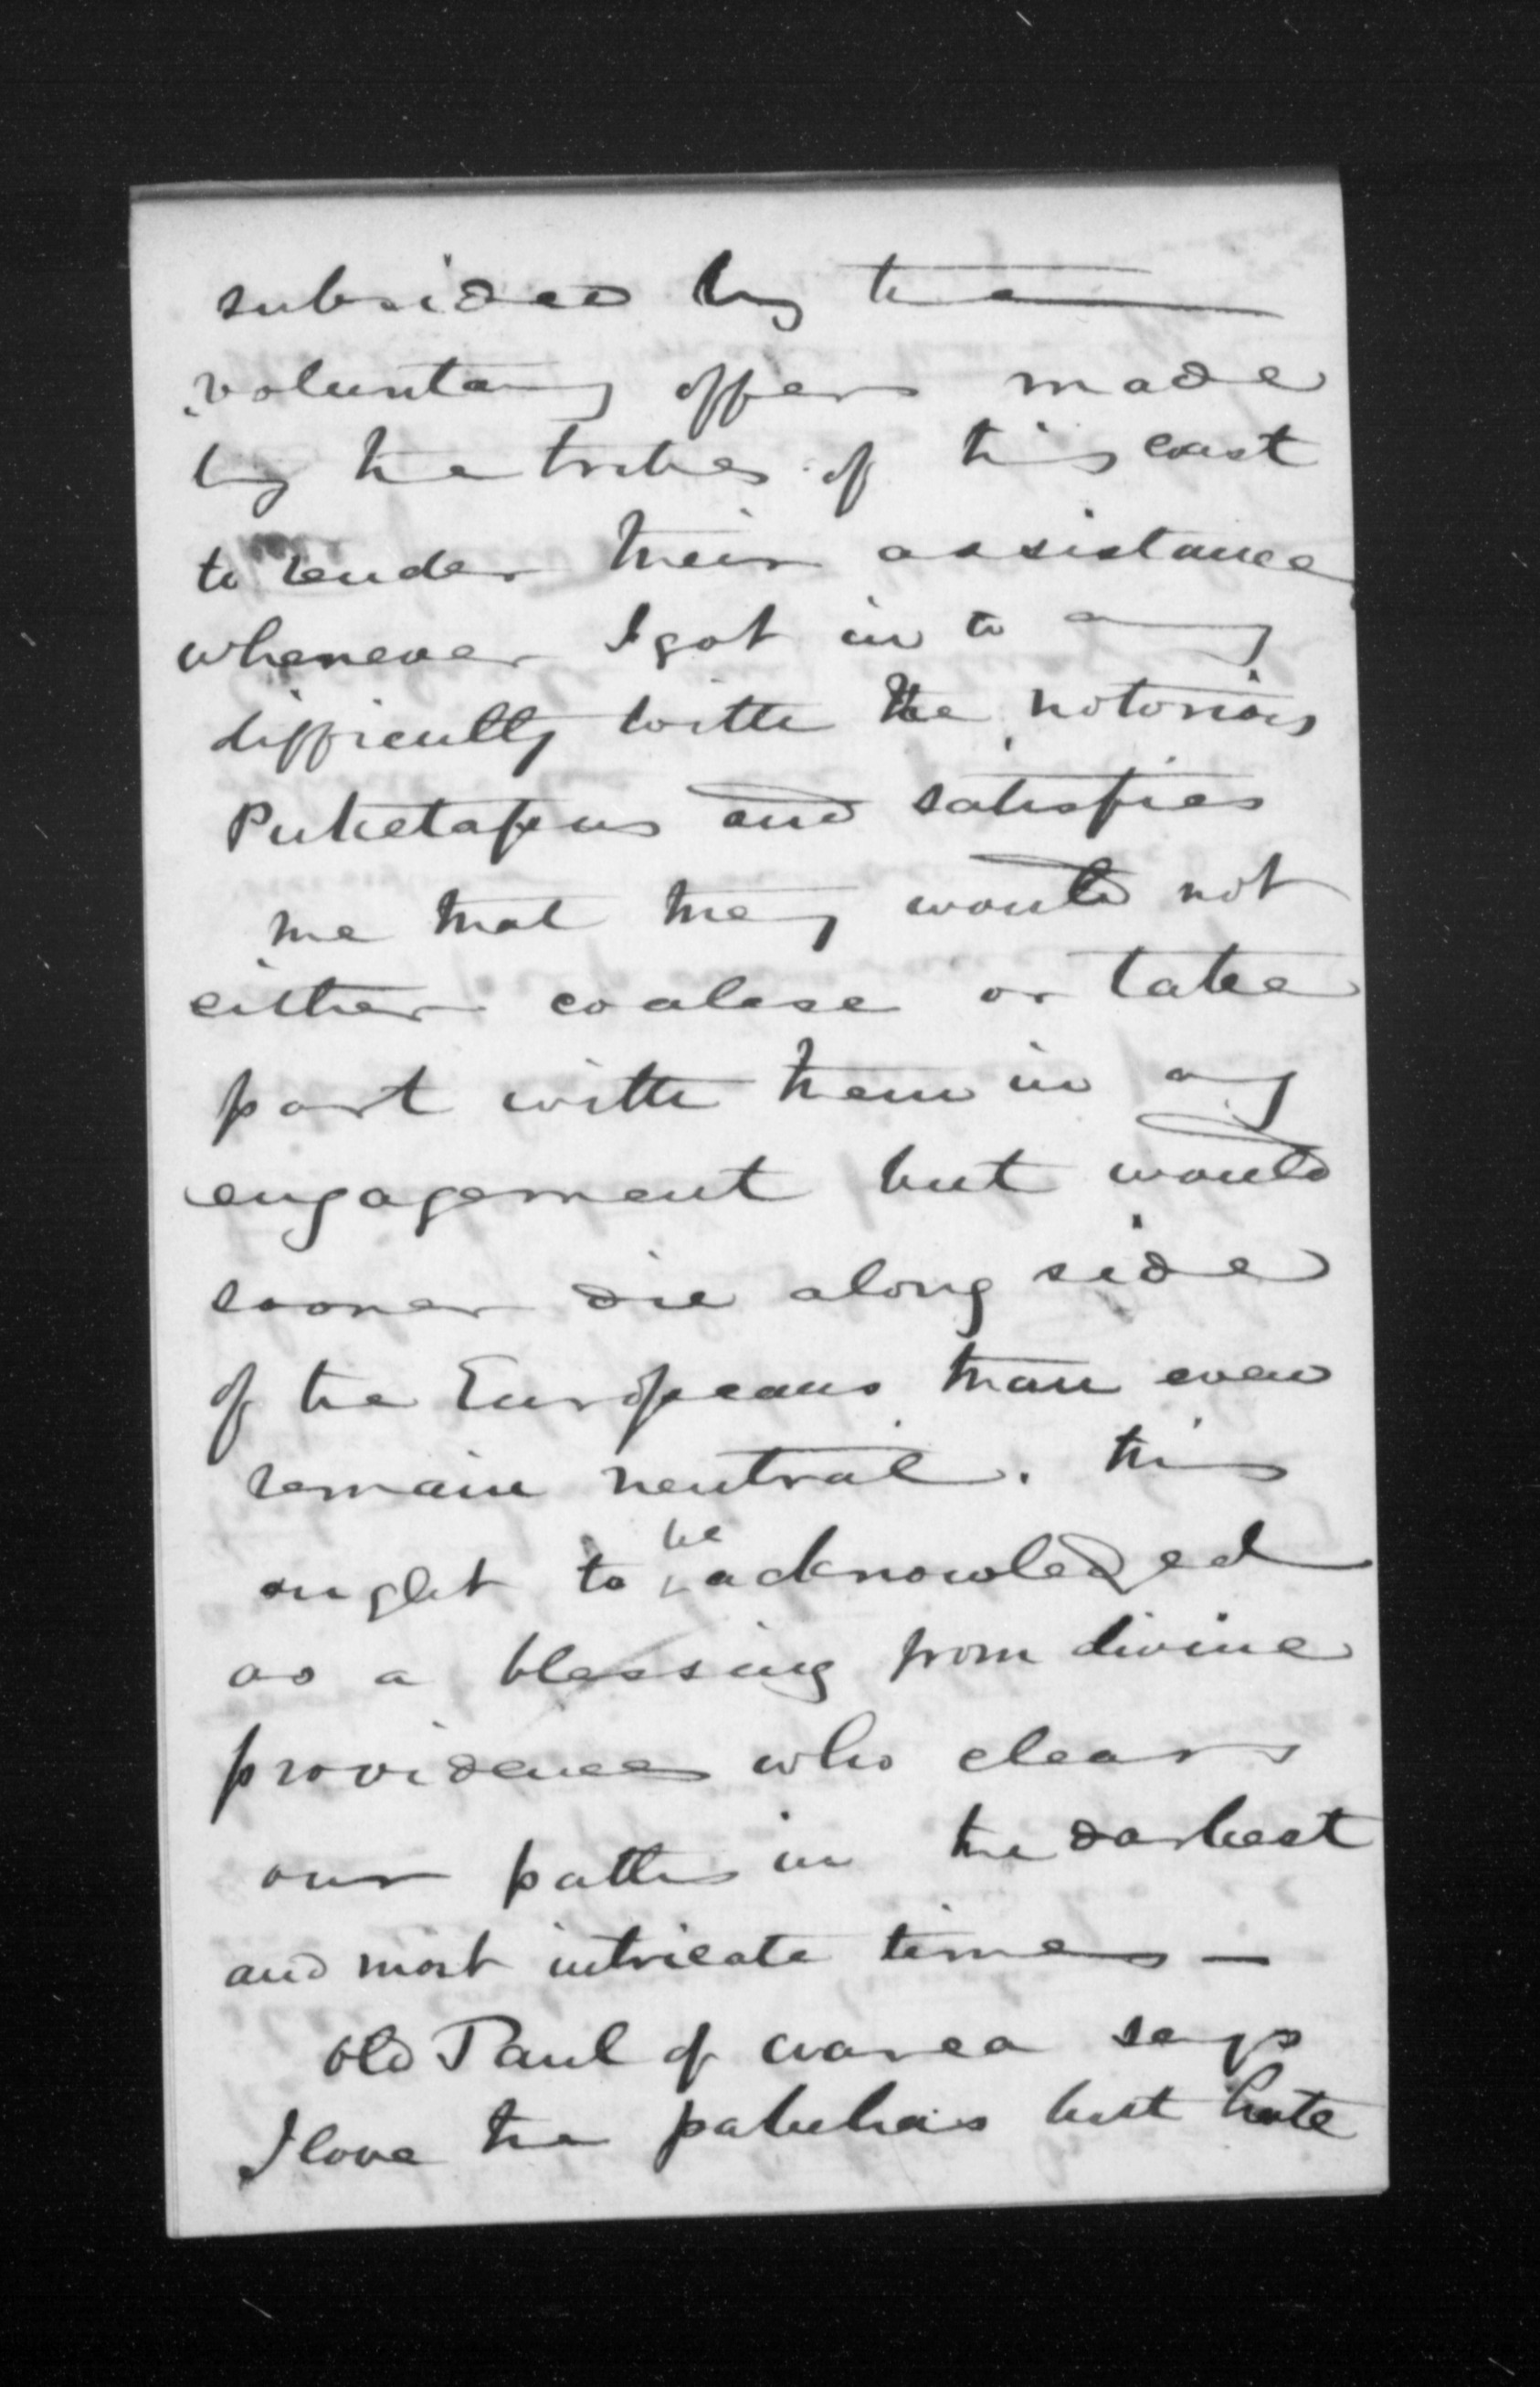 subsided by the
voluntary offers made
by the tribes of this coast
to render their assistance
whenever I got in to any
difficulty with the notorious
Puketapus and satisfies
me that they would not
either coalese or take
part with them in any
engagement but would
sooner die along side
of the Europeans than even
remain neutral. this
ought to be acknowledged
as a blessing from divine
providence who clears
our paths in the darkest
and most intricate times —
Old Paul of warea says
I love the pakehas but hate